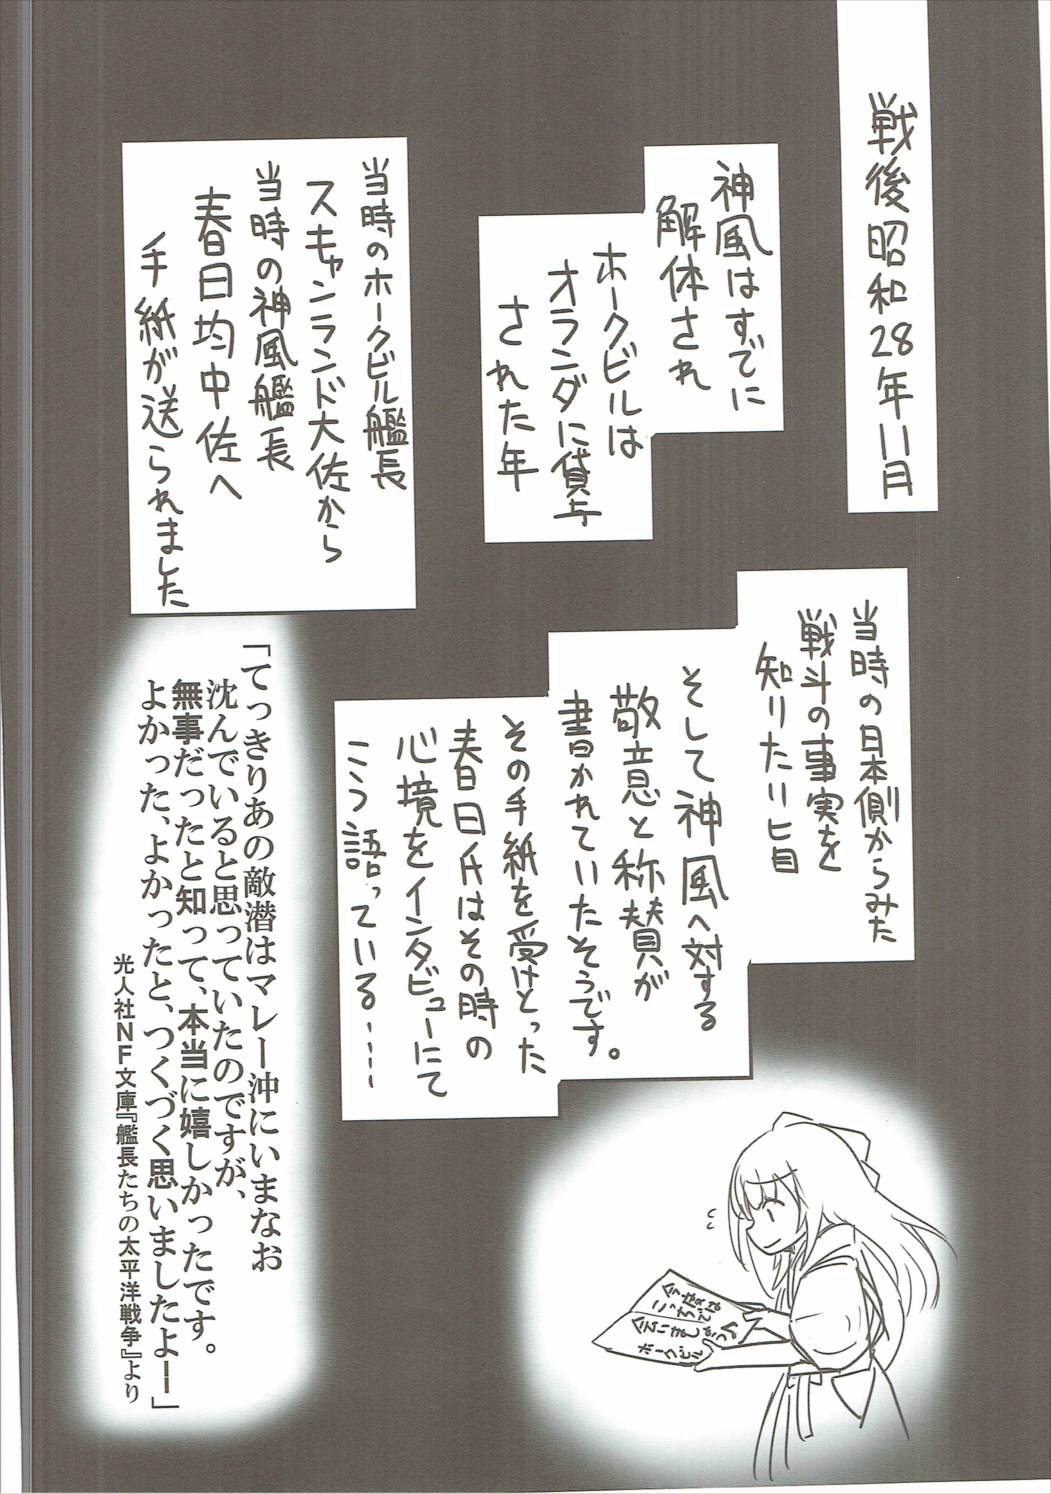 戦後昭和28年11月
神風はすでに
解体され
ホークビルは
オランダに貸与
された年
当時のホークビル艦長
スキャンランド大佐から
当時の神風艦長
春日均中佐へ
手紙が送られました
当時の日本側からみた
戦斗の事実を
知りたい旨
そして神風へ対する
敬意と称賛が
書かれていたそうです。
その手紙を受けとった
春日氏はその時の
心境をインタビューにて
こう語っている……
「てっきりあの敵潜はマレー沖にいまなお
沈んでいると思っていたのですが、
無事だったと知って、本当に嬉しかったです。
よかった、よかったと、つくづく思いましたよー」
光人社NF文庫『艦長たちの太平洋戦争』より
ホークビル